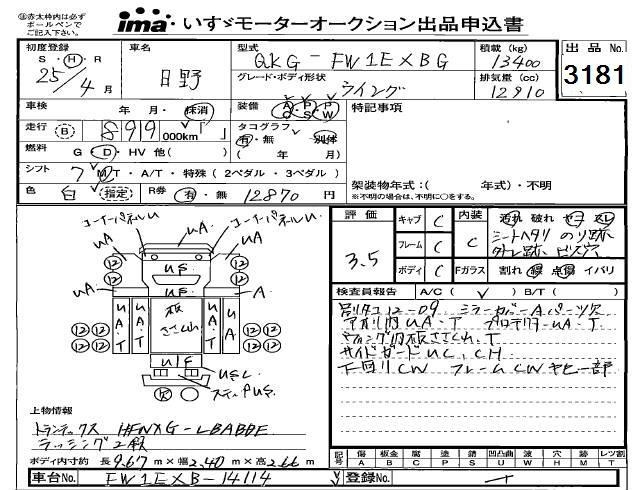 ※赤太枠内は必ず
ボールペンで
ご記入下さい。
ima いすゞモーターオークション出品申込書
初度登録
S・H・R
25年4月
車名
日野
型式
QKG-FW1EXBG
グレード・ボディ形状
ウイング
積載 (kg)
13400
排気量 (cc)
12910
出品 No.
3181
車検 年・月・抹消
装備 A/C P/S P/W
特記事項
走行 (B) 899 ,000km
タコグラフ 有・無 別体
( 年 月)
燃料 G・D・HV 他( )
シフト 7 MT・A/T・特殊 (2ペダル・3ペダル)
架装物年式:( 年式)・不明
※不明の場合は、不明に○をする。
色 白 指定 R券 有・無 12870円
コーナーパネルU コーナーパネルU
UA UA
12 12 12 12
UA A
UA・T UA・T 板ささくれ UA・T UA・T
12 12 12 12
12 12 12 12
USC
評価
3.5
キャブ C
フレーム C
ボディ C
内装 C
Fガラス
汚れ 破れ コゲ スレ
シートヘタリ のり跡
外し跡 ビス穴
割れ 線 点傷 イバリ
検査員報告 A/C( ) B/T( )
割リタコ12-09 ミラーカバーAパーツ欠
アオリ内UA・T プロテクターUA・T
ウィング内板ささくれ、T
サイドガードUC、CH
下回りCW フレームCWサビ一部
上物情報
トランテックス HFNXG-LBABBE
ラッシング2段
ボディ内寸約 長9.67m×幅2.40m×高2.66m
記号 傷 板金 腐 塗 錆 凹凸曲 波 穴 跡 レツ割
A B C P S U W H M T
車台No. FW1EXB-14114
登録No.